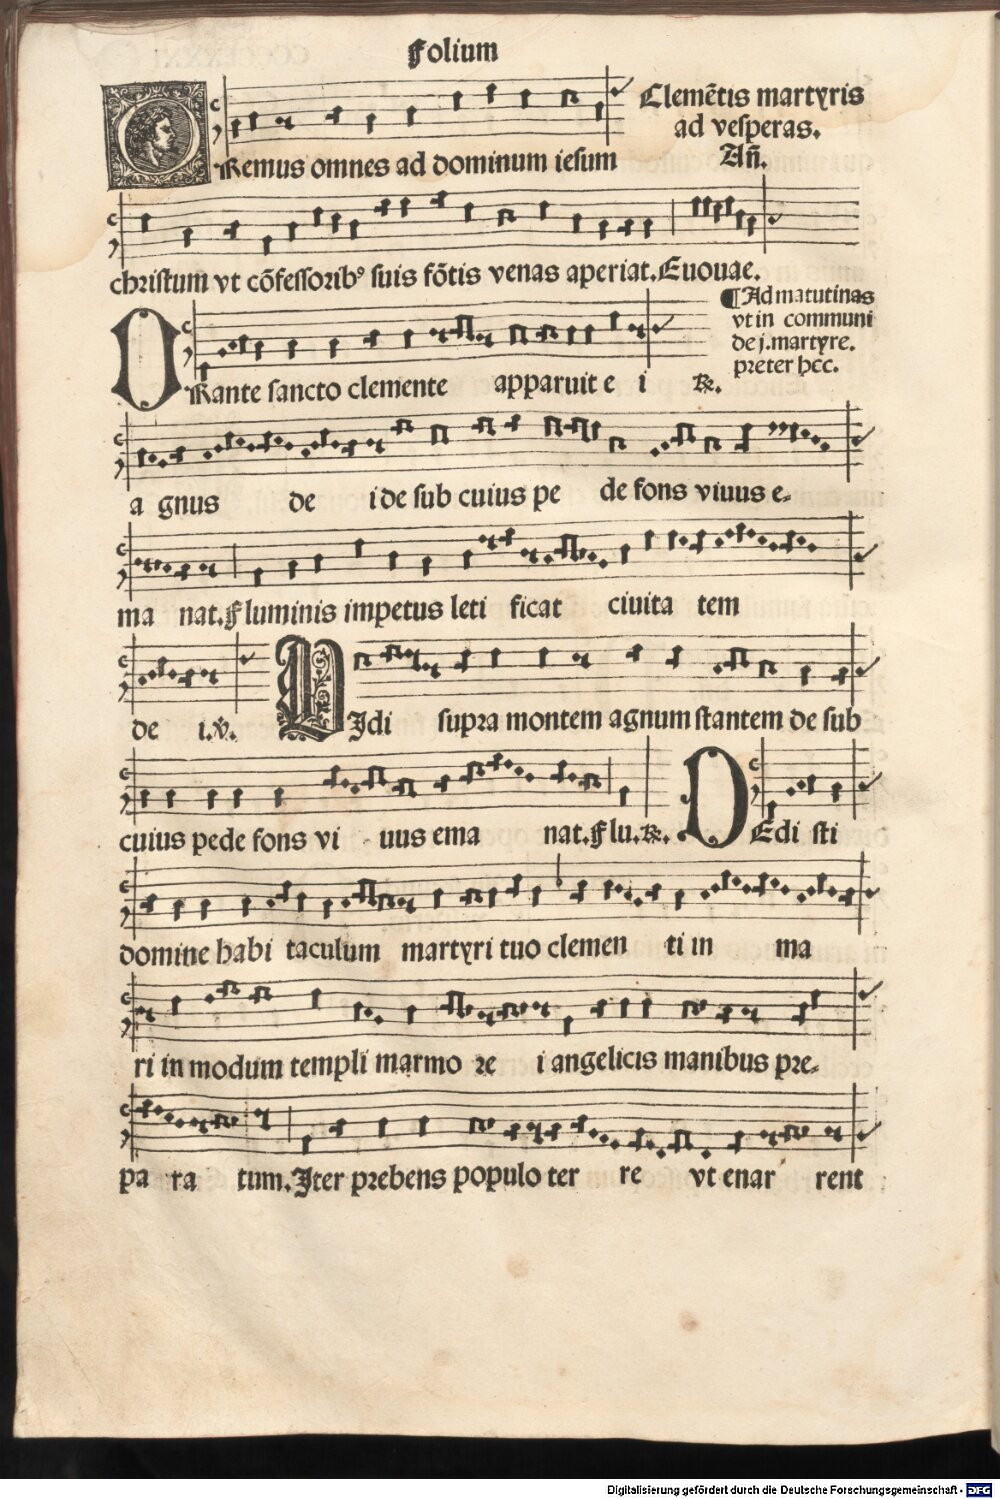 Folium
Clemẽtis martyris
ad vesperas.
Añ.
ORemus omnes ad dominum iesum
christum vt cõfessorib⁹ suis fõtis venas aperiat. Euouae.
¶Ad matutinas
vt in communi
de j. martyre.
preter hec.
ORante sancto clemente apparuit e i ℟.
a gnus de i de sub cuius pe de fons viuus e-
ma nat. Fluminis impetus leti ficat ciuita tem
de i. ℣. VIdi supra montem agnum stantem de sub
cuius pede fons vi uus ema nat. Flu. ℟. DEdi sti
domine habi taculum martyri tuo clemen ti in ma
ri in modum templi marmo re i angelicis manibus pre-
pa ra tum. Iter prebens populo ter re vt enar rent
Digitalisierung gefördert durch die Deutsche Forschungsgemeinschaft - DFG